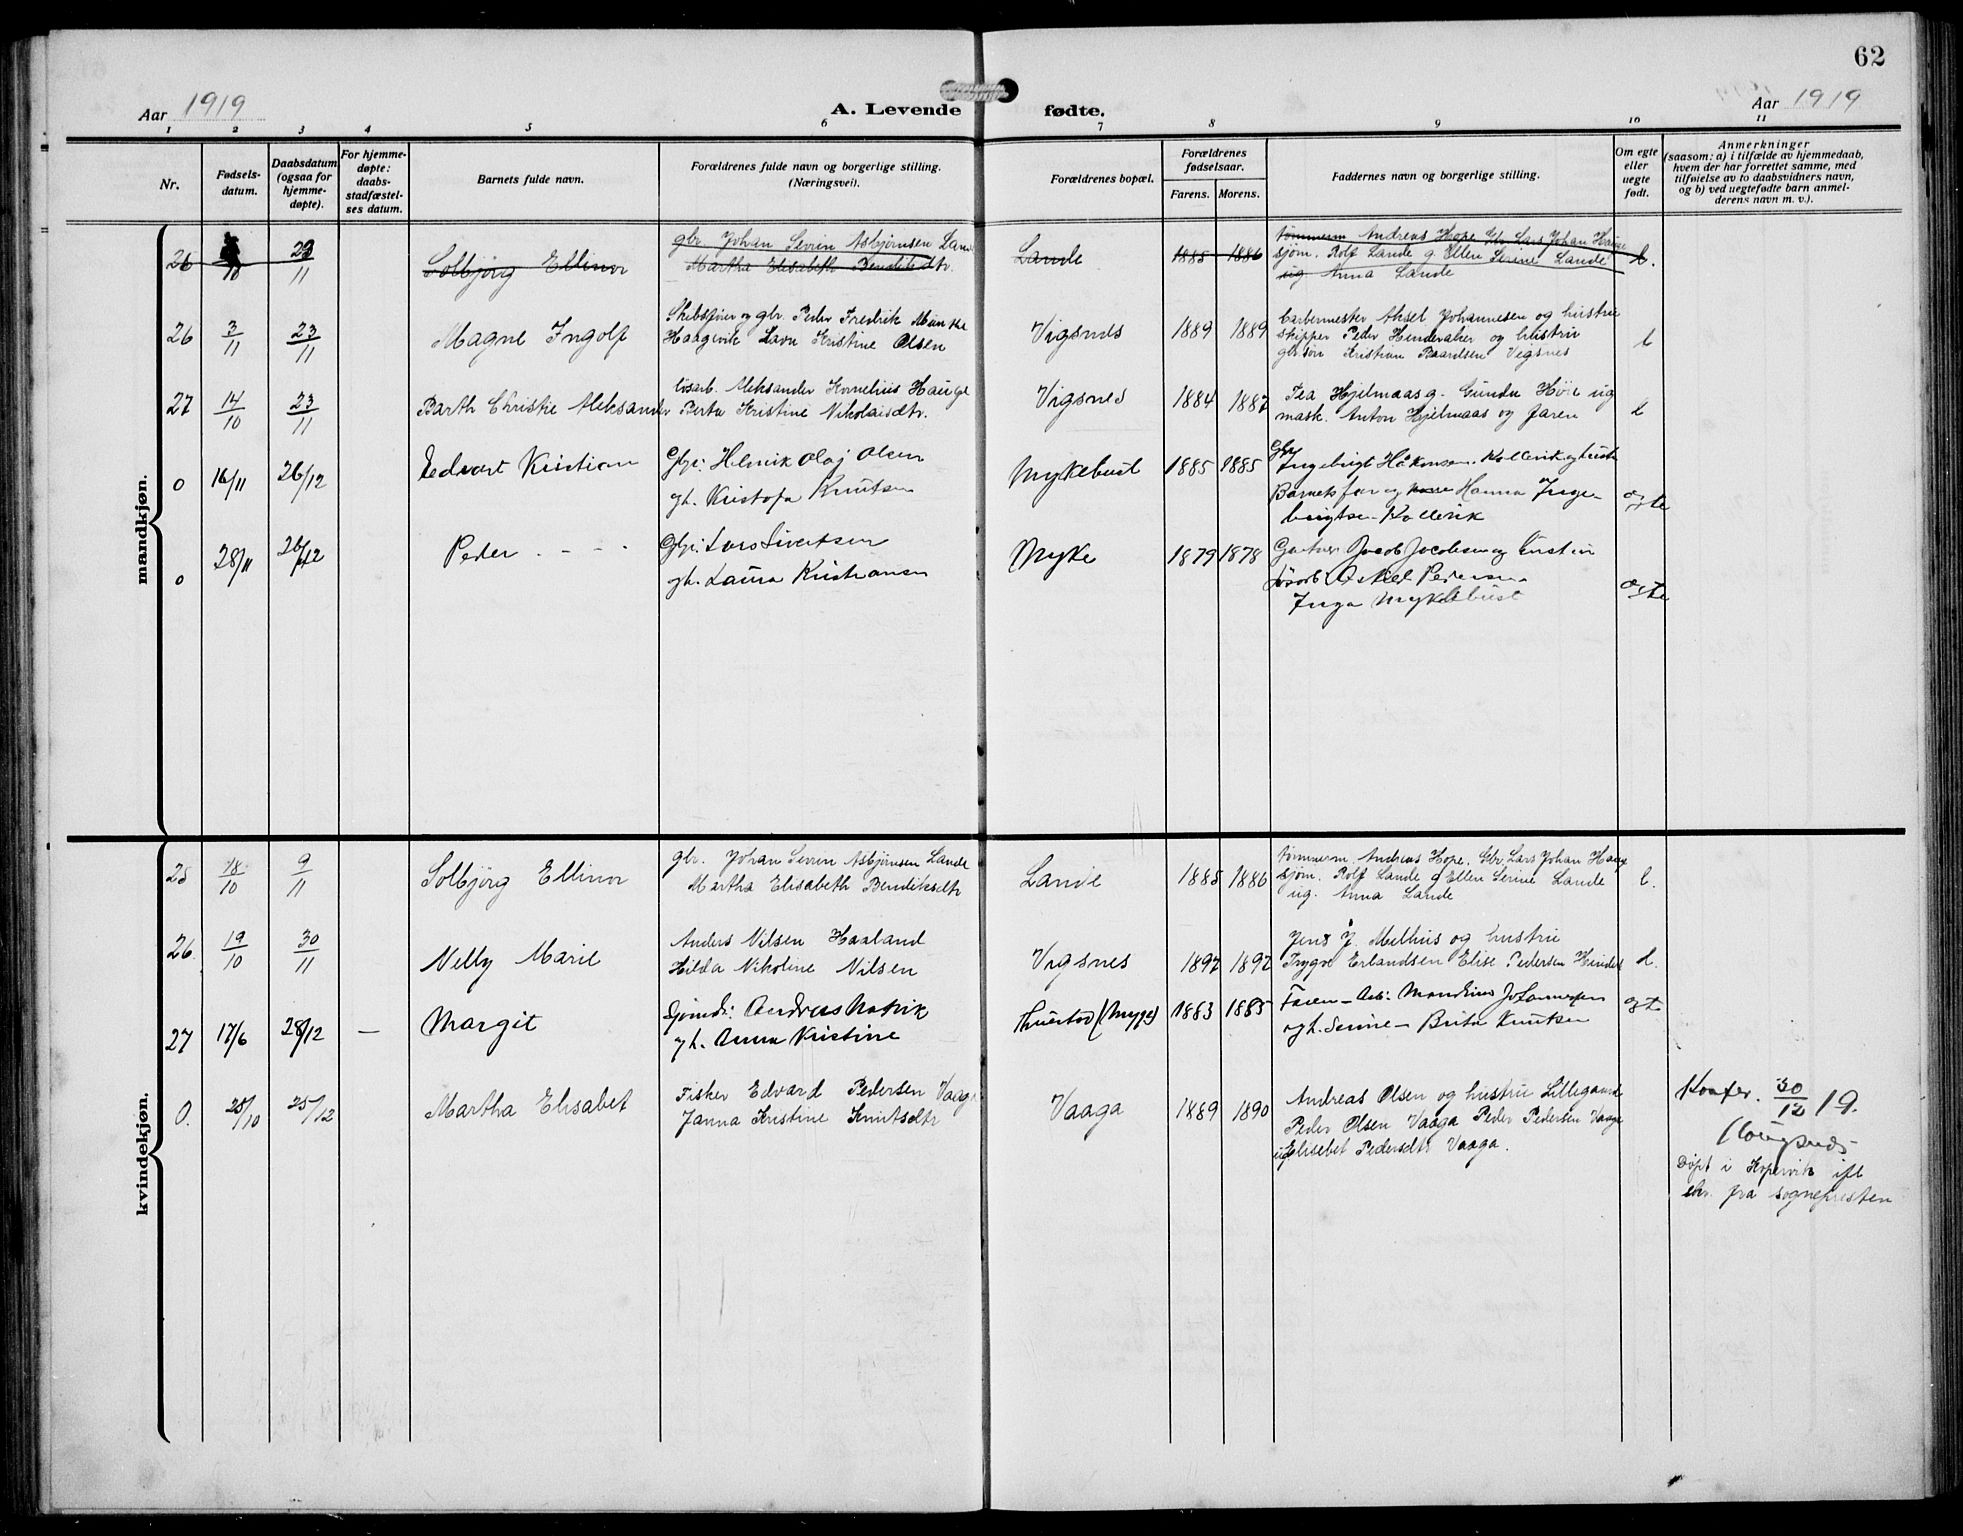 62
Aar 1919
A. Levende fødte.
Aar 1919
1 2 3 4 5 6 7 8 9 10 11
Nr.
Fødsels-
datum.
Daabsdatum
(ogsaa for
hjemme-
døpte).
For hjemme-
døpte:
daabs-
stadfæstel-
ses datum.
Barnets fulde navn.
Forældrenes fulde navn og borgerlige stilling.
(Næringsvei).
Forældrenes bopæl.
Forældrenes
fødselsaar.
Farens. Morens.
Faddernes navn og borgerlige stilling.
Om egte
eller
uegte
født.
Anmerkninger
(saasom: a) i tilfælde av hjemmedaab,
hvem der har forrettet samme, med
tilføielse av to daabsvidners navn,
og b) ved uegtefødte barn anmel-
derens navn m. v.).
mandkjøn.
26 10 23/11 Solbjörg Ellinor
gbr. Johan Sevrin Asbjörnsen Lande
Martha Elisabeth Bendiksdtr.
Lande 1885 1886
tömmerm Andreas Hope Gbr. Lars Johan
sjöm. Rolf Lande g Ellen Serine Lande
ug Anna Lande
26 3/11 23/11 Magne Ingolf
og gbr Peder Fredrik
Haagvik Kristine Olsen
Vigsnes 1889 1889
Aksel Johannesen og hustru
skipper Peder Hinderaker og hustru
gbrsön Kristian Baardsen Vegsnes
27 14/10 23/11 Barth Christie Aleksander
lösarb. Aleksander Kornelius Hauge
Berta Kristine Nikolaisdtr.
Vigsnes 1884 1887
Tea Hjelmaas g. Gunda Höie ug
mask. Anton Hjelmaas og faren
0 16/11 26/12 Edvart Kristian
Gbr: Henrik Olaj Olsen
gh. Kristofa Knutsen
Myklebust 1885 1885
Gbr
Ingebrigt Håkonsen Kollevik og hustr
Barnets far og Hanna Inge-
brigtsen Kollevik
egte
0 28/11 26/12 Peder - - -
Gbr: Lars Sivertsen
gh. Laura Kristiansen
Myke 1879 1878
Gartner Jacob Jacobsen og
Lösarb: Pedersen
Inga Myklebust
egte
kvindekjøn.
25 18/10 9/11 Solbjörg Ellinor
gbr. Johan Sevrin Asbjörnsen Lande
Martha Elisabeth Bendiksdtr
Lande 1885 1886
tömmerm. Andreas Hope. Gbr. Lars Johan
sjöm. Rolf Lande g Ellen Serine Lande
ug. Anna Lande
26. 19/10 30/11 Nelly Marie
Anders Nilsen Haaland
Hilda Nikoline Nilsen
Vigsnes 1892 1892
Jens J. Melhus og hustru
Trygve Erlandsen Elise Pedersen
27 17/6 28/12 — Margit
Andreas
gh. Anna Kristine
1883 1885
Faren – Arb:
og h. Serine – Brita Knutsen
egte
0. 25/10 25/12 Martha Elisabet
Fisker Edvard Pedersen Vaage
Janna Kristine Knutsdtr
Vaaga 1889 1890
Andreas Olsen og hustru
Peder Olsen Vaaga Peder Pedersen Vaage
ug Elisebet Pedersdtr Vaaga.
30/12 19.
Döpt i Kopervik ifl
skr. fra sognepresten